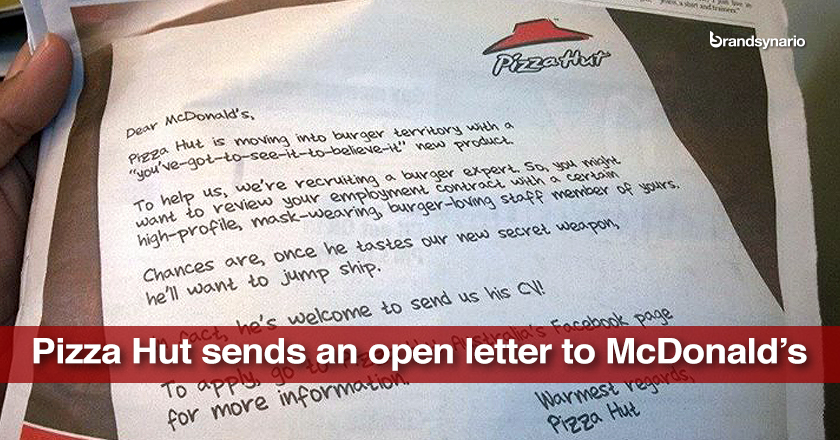 jeans, a shirt and trainers."
brandsynario
Pizza Hut
Dear McDonald's,
Pizza Hut is moving into burger territory with a
"you've-got-to-see-it-to-believe-it" new product.
To help us, we're recruiting a burger expert. So, you might
want to review your employment contract with a certain
high-profile, mask-wearing, burger-loving staff member of yours.
Chances are, once he tastes our new secret weapon,
he'll want to jump ship.
fact, he's welcome to send us his CV!
Pizza Hut sends an open letter to McDonald's
To apply, go to Australia's Facebook page
for more information.
Warmest regards,
Pizza Hut